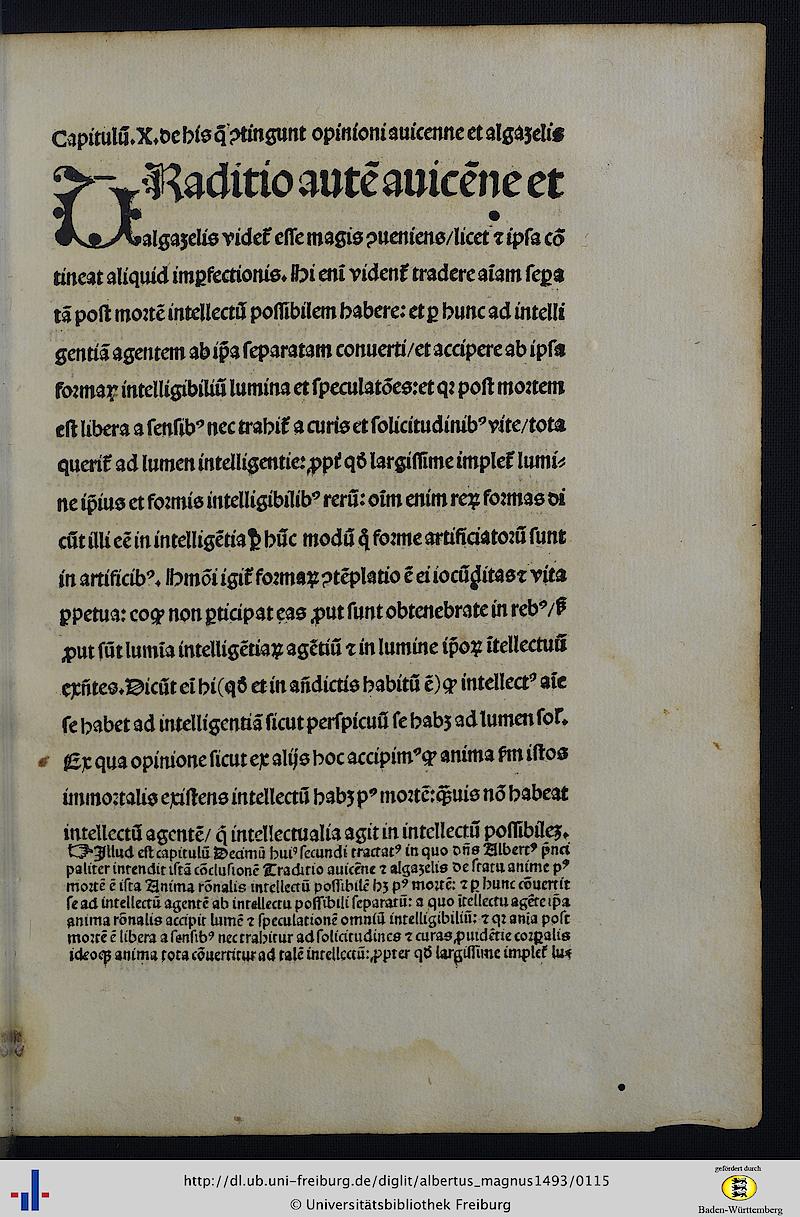 Capitulū.X.de his q̄ ꝯtingunt opinioni auicenne et algazelis
TRaditio autē auicēne et
algazelis videt᷑ esse magis ꝯueniens/licet ⁊ ipsa cō
tineat aliquid imꝑfectionis. Hi eni vident᷑ tradere aīam seꝑa
tā post mortē intellectū possibilem habere: et ꝑ hunc ad intelli
gentiā agentem ab ip̄a separatam conuerti/et accipere ab ipsa
formaꝝ intelligibiliū lumina et speculatōes: et qꝛ post mortem
est libera a sensibꝰ nec trahit᷑ a curis et solicitudinibꝰ vite/tota
querit᷑ ad lumen intelligentie: ꝓpt᷑ qd̄ largissime implet᷑ lumi⸗
ne ip̄ius et formis intelligibilibꝰ rerū: oīm enim reꝝ formas di
cūt illi eē in intelligētia ꝑ hūc modū q̄ forme artificiatorū sunt
in artificibꝰ. Hmōi igit᷑ formaꝝ ꝯtēplatio ē ei iocūditas ⁊ vita
ꝑpetua: eoꝙ non ꝑticipat eas ꝓut sunt obtenebrate in rebꝰ/s᷑
ꝓut sūt lumīa intelligētiaꝝ agētiū ⁊ in lumine ip̄oꝝ ītellectuū
exn̄tes. Dicūt eī hi (qd̄ et in an̄dictis habitū ē) ꝙ intellectꝰ aīe
se habet ad intelligentiā sicut perspicuū se habꝫ ad lumen sol᷑.
Ex qua opinione sicut ex alijs hoc accipimꝰ ꝙ anima s̄m istos
immortalis existens intellectū habꝫ pꝰ mortē: q̄ꝫuis nō habeat
intellectū agentē/ q̄ intellectualia agit in intellectū possibileꝫ.
☞Illud est capitulū Decimū huiꝰ secundi tractatꝰ in quo dn̄s Albertꝰ p̄nci
paliter intendit istā cōclusionē Traditio auicēne ⁊ algazelis de statu anime pꝰ
mortē ē ista Anima rōnalis intellectū possibilē hꝫ pꝰ mortē: ⁊ ꝑ hunc cōuertit
se ad intellectū agentē ab intellectu possibili separatū: a quo ītellectu agēte ip̄a
anima rōnalis accipit lumē ⁊ speculationē omniū intelligibiliū: ⁊ qꝛ anīa post
mortē ē libera a sensibꝰ nec trahitur ad solicitudines ⁊ curas ꝓuidētie corꝑalis
ideoqꝫ anima tota cōuertitur ad talē intellectū: ꝓpter qd̄ largissime implet᷑ lu⸗
http://dl.ub.uni-freiburg.de/diglit/albertus_magnus1493/0115
© Universitätsbibliothek Freiburg
gefördert durch
Baden-Württemberg